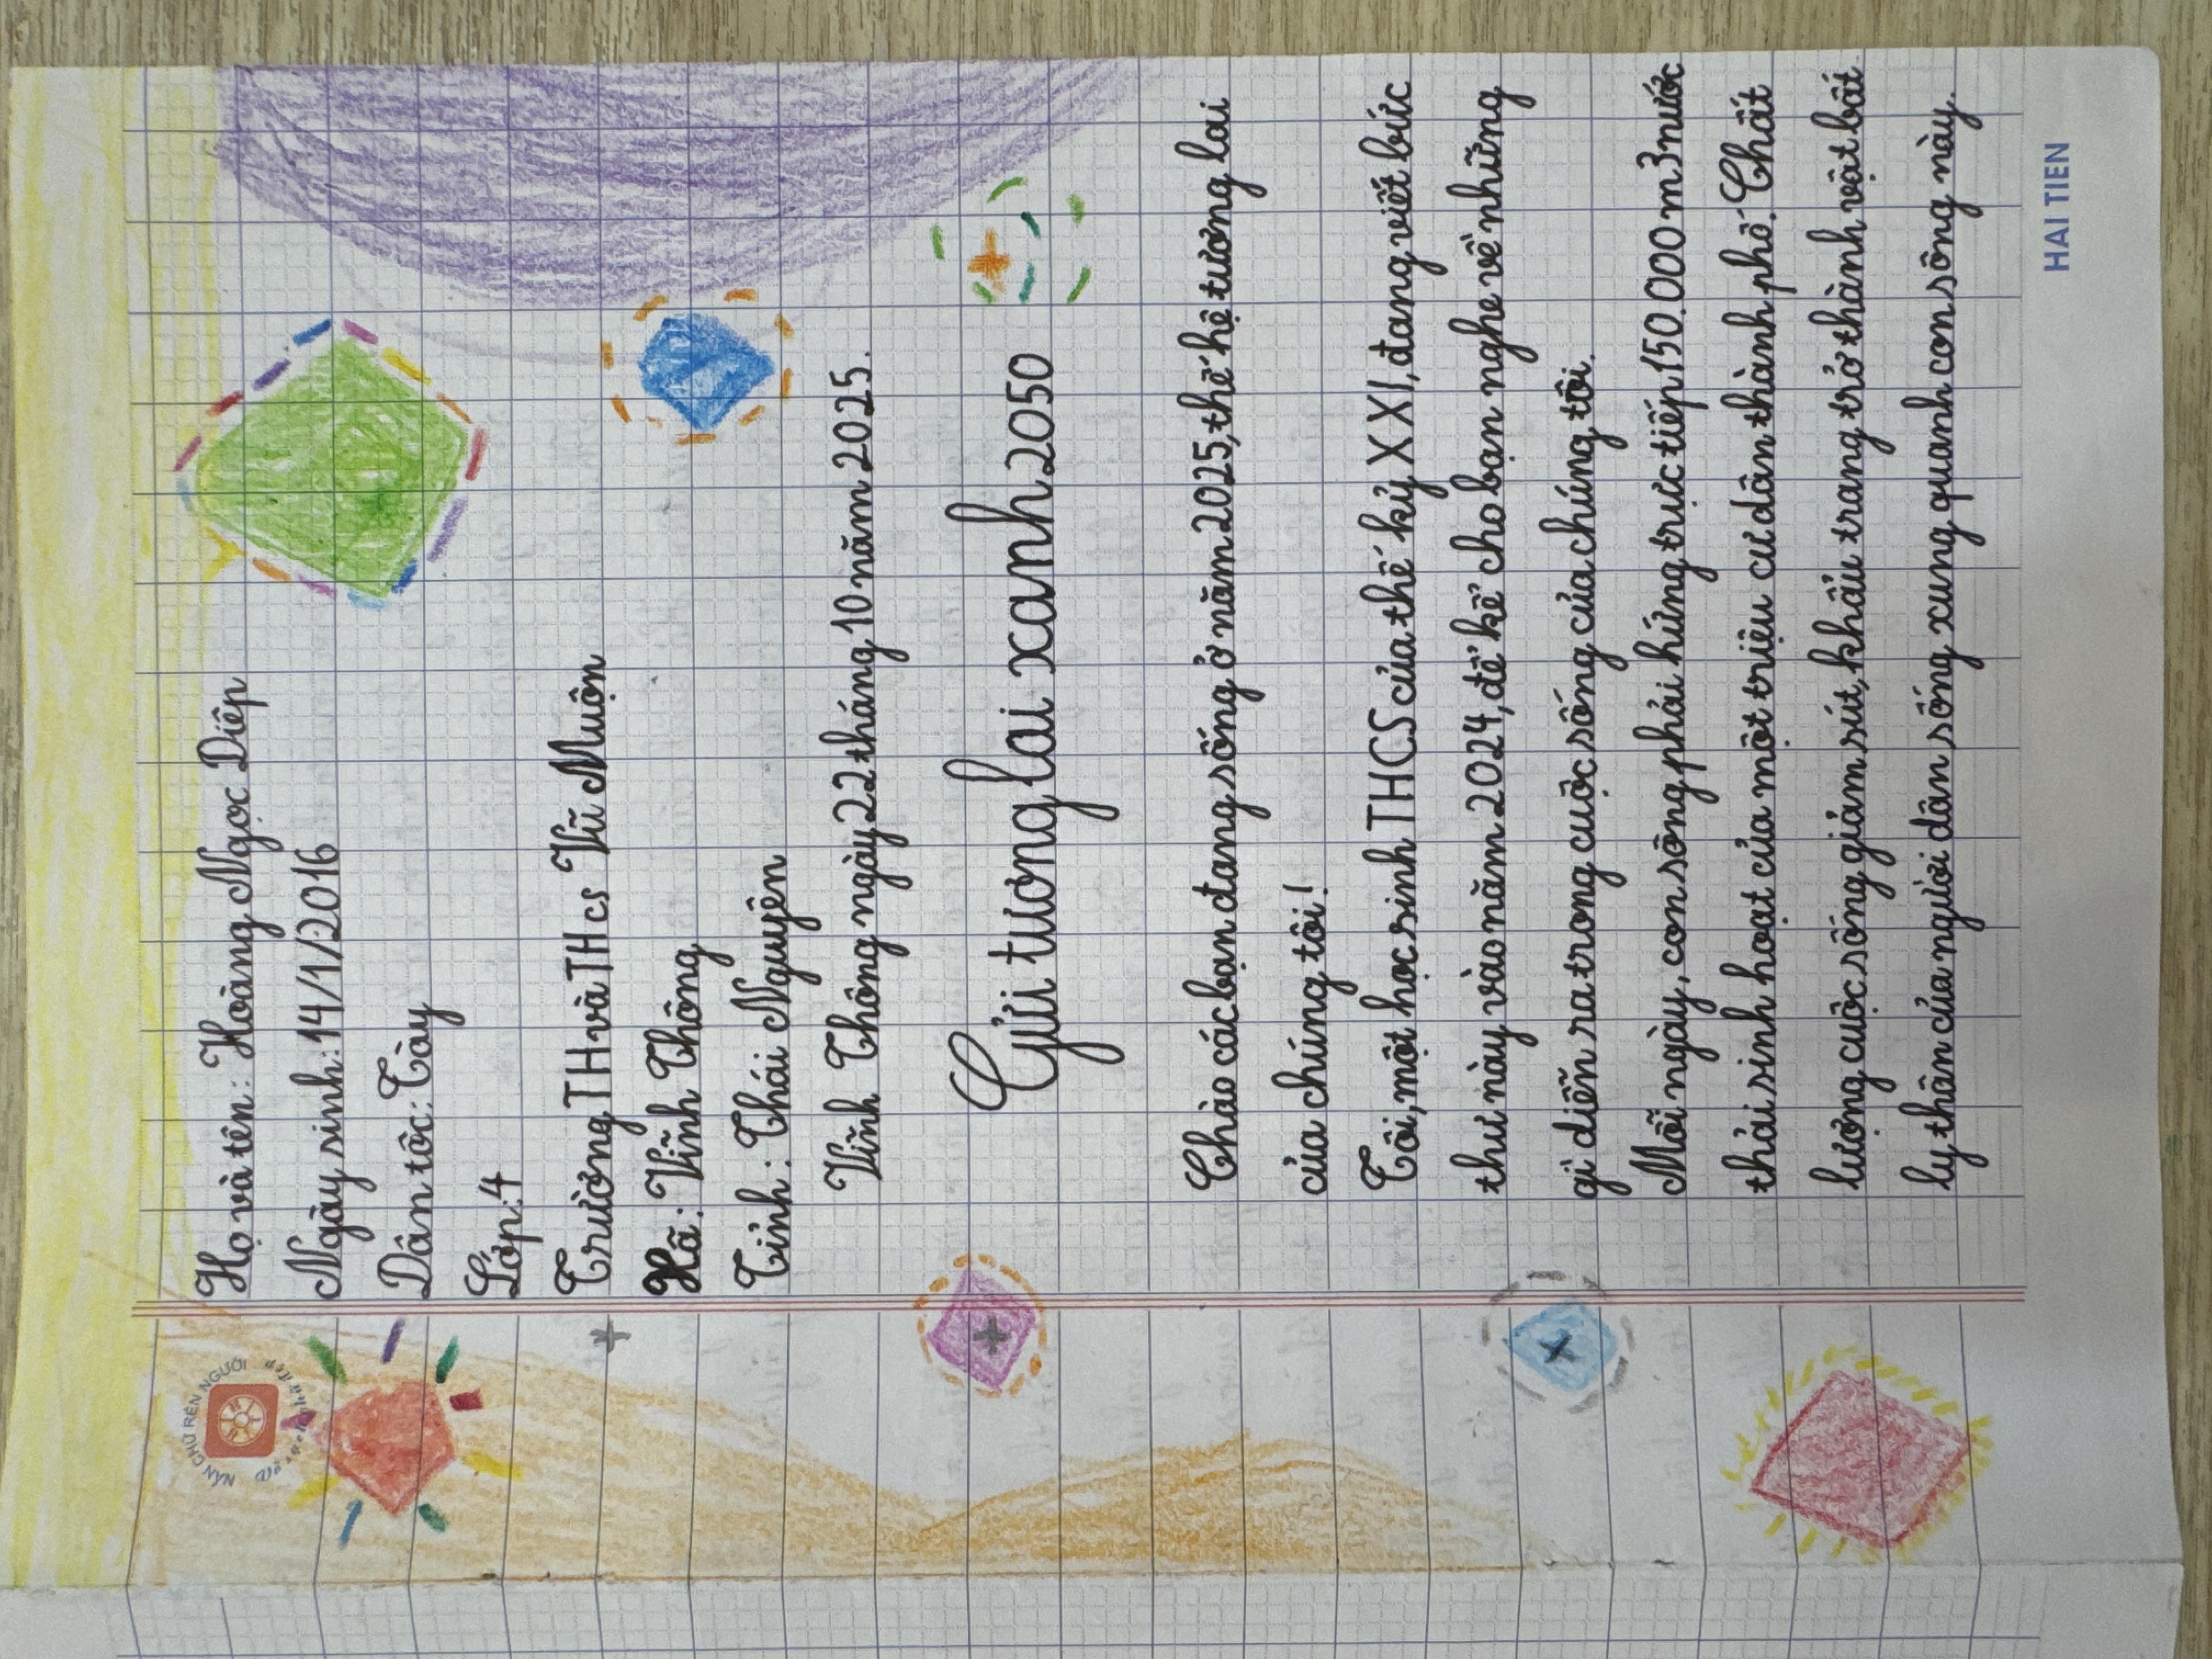 Họ và tên: Hoàng Ngọc Diệp
Ngày sinh: 14/1/2016
Dân tôc: Tày
Lớp: 4
Trường TH và THcs Vũ Muộn
Xã: Vĩnh Thông
Tỉnh: Thái Nguyên
Vĩnh Thông ngày 22 tháng 10 năm 2025.
Gửi tương lai xanh 2050
Chào các bạn đang sống ở năm 2025, thế hệ tương lai
của chúng tôi!
Tôi, một học sinh THCS của thế kỷ XXI, đang viết bức
thư này vào năm 2024, để kể cho bạn nghe về những
gì diễn ra trong cuộc sống của chúng tôi.
Mỗi ngày, con sông phải hứng trực tiếp 150.000 m3 nước
thải sinh hoạt của một triệu cư dân thành phố. Chất
lượng cuộc sống giảm sút, khẩu trang trở thành vật bất
ly thân của người dân sống xung quanh con sông này.
NẮN CHỮ RÈN NGƯỜI
HAI TIEN